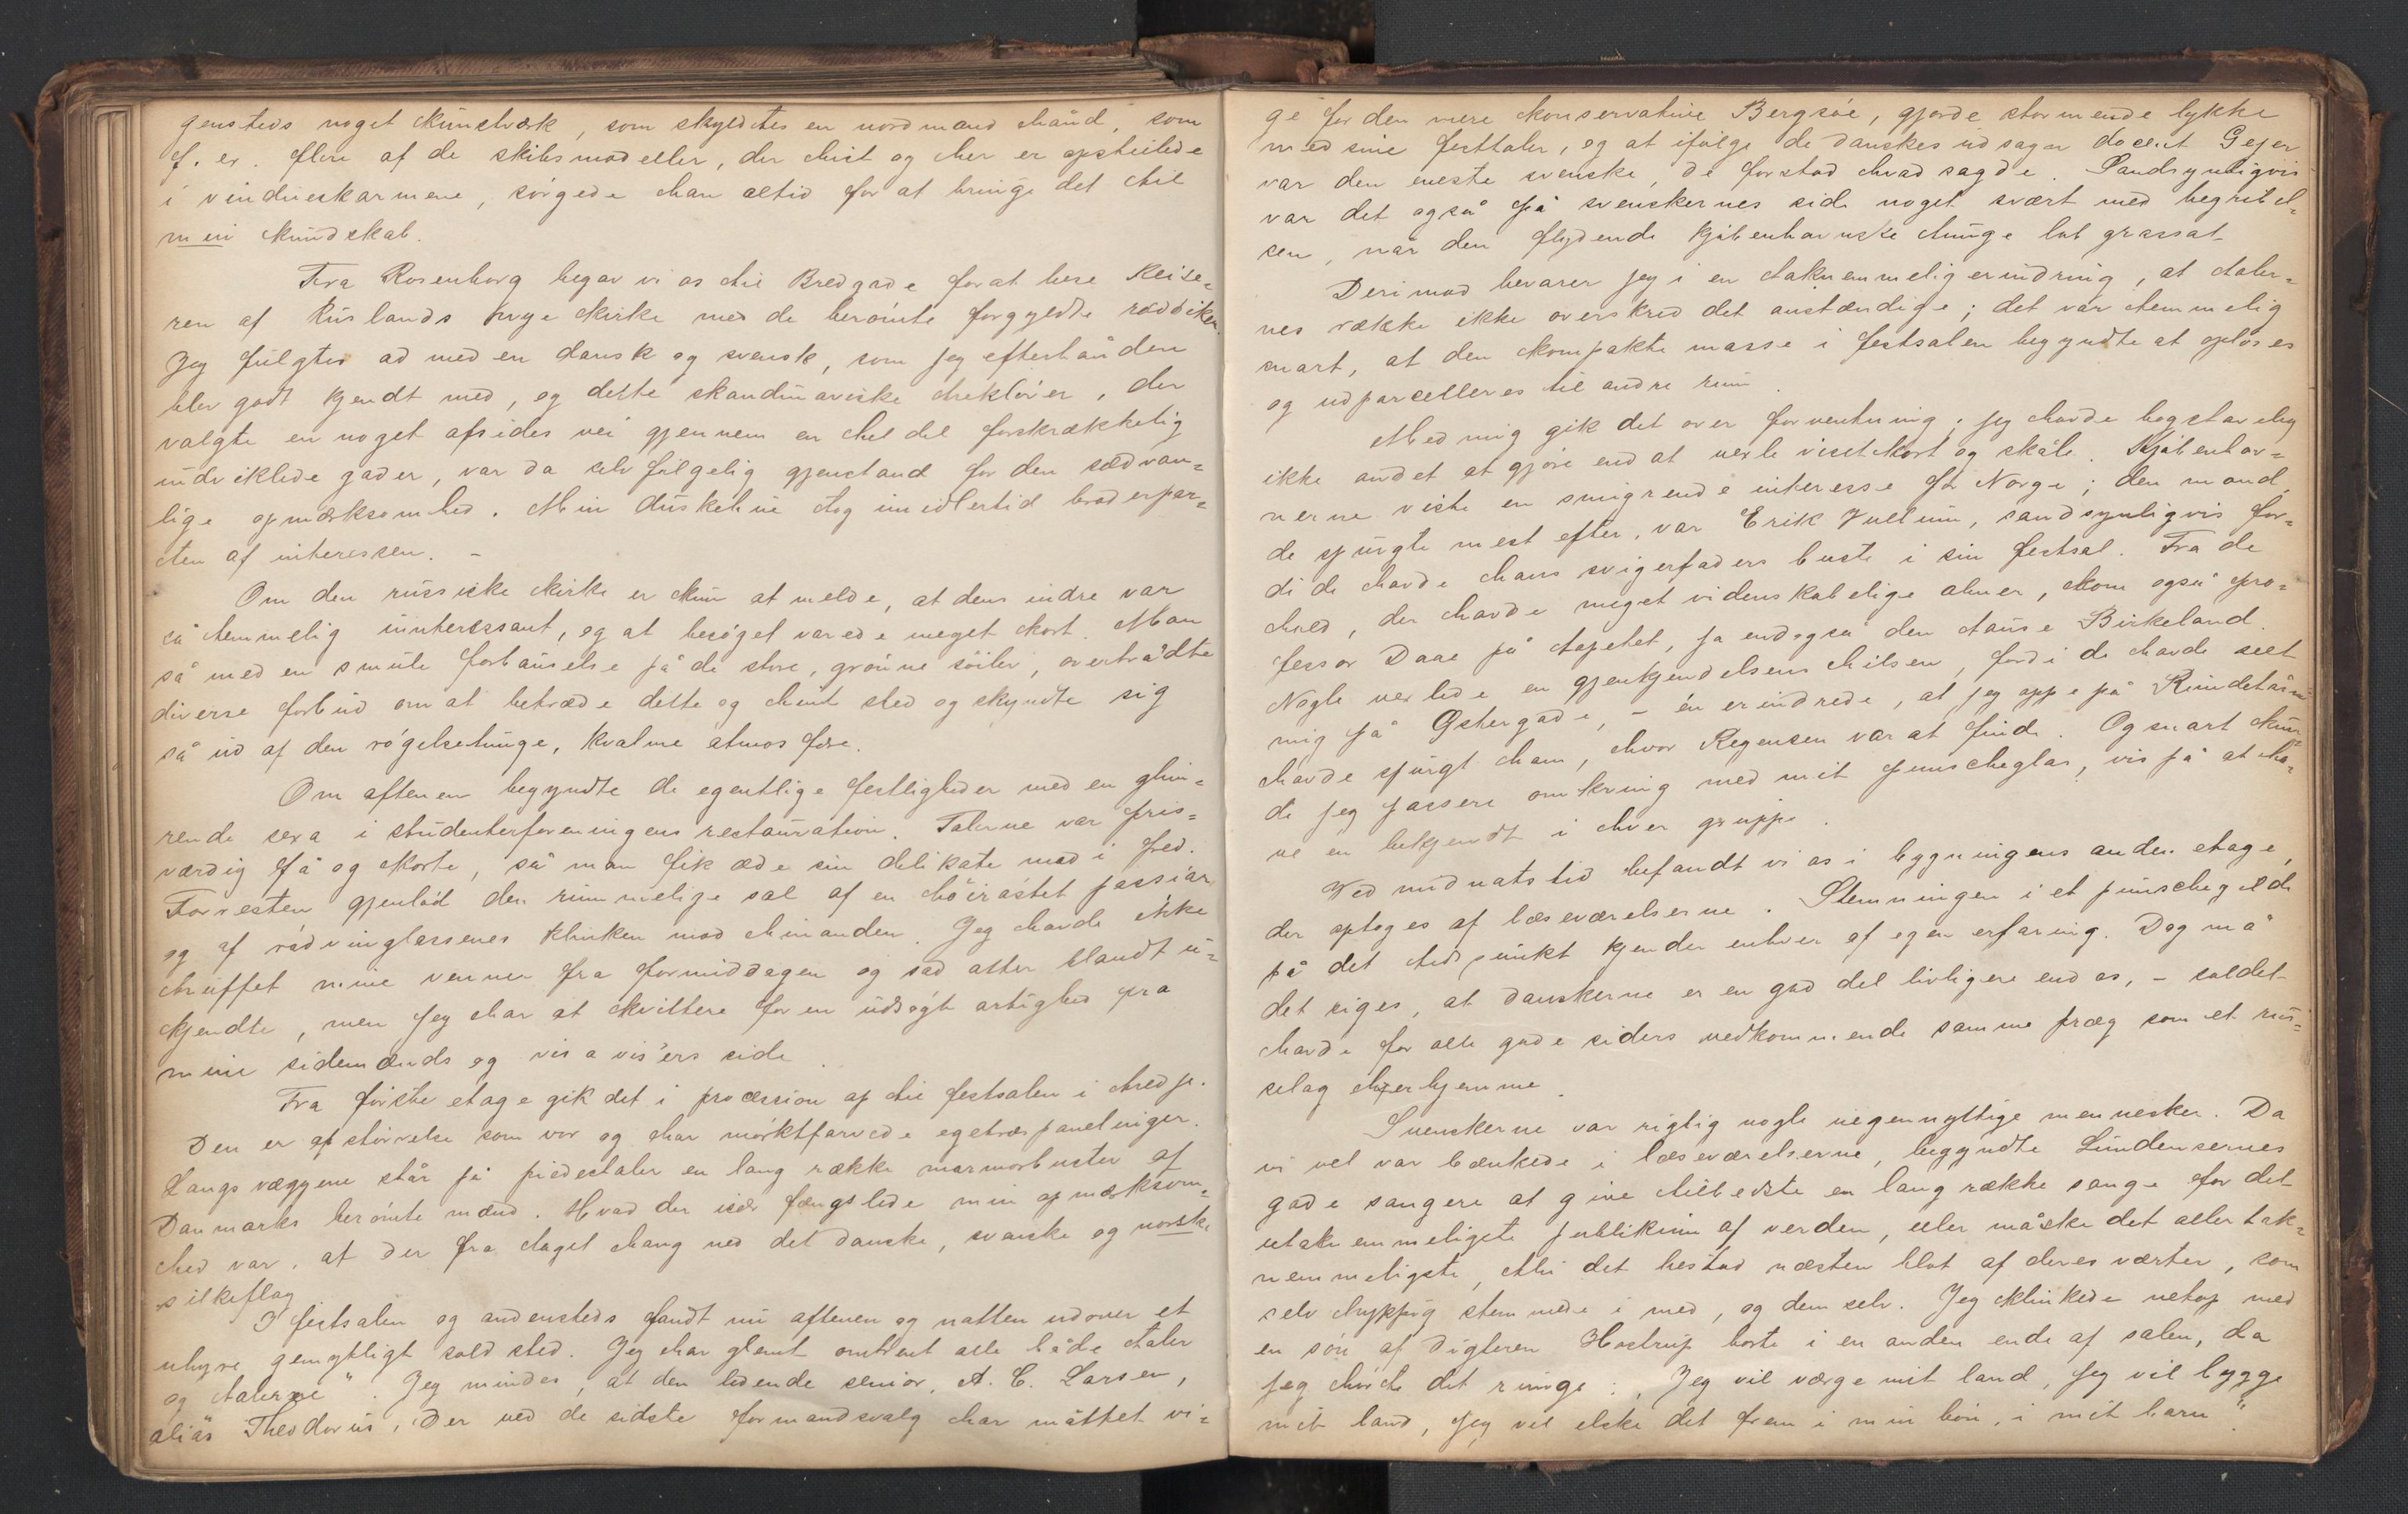 gensteds noget kunstværk, som skyldtes en nordmands hånd, som
f. ex. flere af de skibsmodeller, der hist og her er opstillede
i vindueskarmene, sörgede han altid for at bringe det til
min kundskab.
Fra Rosenborg begav vi os til Bredgade for at bese Keise-
ren af Ruslands nye kirke med de berömte forgyldte
Jeg fulgtes ad med en dansk og svensk, som jeg efterhånden
blev godt kjendt med, og dette skandinaviske trekløver, der
valgte en noget afsides vei gjennem en hel del forskrækkelig
indviklede gader, var da selvfölgelig gjenstand for den sædvan-
lige opmærksomhed. Min duskehue tog imidlertid broderpar-
ten af interessen. –
Om den russiske kirke er kun at melde, at dens indre var
så temmelig uinteressant, og at besöget varede meget kort. Man
så med en smule forbauselse på de store, grönne söiler, overtrådte
diverse forbud om at betræde dette og hint sted og skyndte sig
så ud af den rögelsetunge, kvalme atmosfære.
Om aftenen begyndte de egentlige festligheder med en glim-
rende sexa i studenterforeningens restauration. Talerne var pris-
værdig få og korte, så man fik æde sin delikate mad i fred.
Forresten gjenlöd den rummelige sal af en höiröstet passiar
og af rödvinglassenes klinken mod hinanden. Jeg havde ikke
truffet mine venner fra formiddagen og sad atter blandt u-
kjendte, men jeg har at kvittere for en udsögt artighed fra
mine sidemænds og vis a vis'ers side.
Fra förste etage gik det i procession op til festsalen i tredje.
Den er af störrelse som vor og har mörktfarvede egetræspanelinger.
Langs væggene står på piedestaler en lang række marmorbuster af
Danmarks berömte mænd. Hvad der især fængslede min opmærksom-
hed var, at der fra taget hang ned det danske, svenske og norske
silkeflag
I festsalen og andensteds fandt nu aftenen og natten udover et
uhyre gemytligt sold sted. Jeg har glemt omtrent alle både taler
og "talerne". Jeg mindes, at den ledende senior, A. C. Larsen,
alias Theodorus, der ved de sidste formandsvalg har måttet vi-
ge for den mere konservative Bergsöe, gjorde stormende lykke
med sine festtaler, og at ifölge de danskes udsagn docent Gejer
var den eneste svenske, de forstod hvad sagde. Sandsynligvis
var det også på svenskernes side noget svært med begribel-
sen, når den flydende kjöbenhavnske tunge lod grassat
Derimod bevarer jeg i en taknemmelig erindring, at taler-
nes række ikke overskred det anstændige; det var temmelig
snart, at den kompakte masse i festsalen begyndte at oplöses
og udparcelleres til andre rum.
Med mig gik det over forventning; jeg havde bogstavelig
ikke andet at gjöre end at vexle visitkort og skåle. Kjöbenhav-
nerne viste en smigrende interesse for Norge; den mand,
de spurgte mest efter, var Erik Vullum, sandsynligvis for-
di de havde hans svigerfaders buste i sin festsal. Fra de
hold, der havde meget videnskabelige aner, kom også pro-
fessor Daae på tapetet, ja endogså den tause Birkeland.
Nogle vexlede en gjenkjendelsens hilsen, fordi de havde seet
mig på Östergade, – én erindrede, at jeg oppe på Rundetårn
havde spurgt ham, hvor Regensen var at finde. Og snart kun-
de jeg passere omkring med mit punscheglas, vis på at ha-
ve en bekjendt i hver gruppe.
Ved midnatstid befandt vi os i bygningens anden etage,
der optoges af læseværelserne. Stemningen i et punschegilde
på det tidspunkt kjender enhver af egen erfaring. Dog må
det siges, at danskerne er en god del livligere end os, – soldet
havde for alle gode siders vedkommende samme præg som et rus-
selag herhjemme.
Svenskerne var rigtig nogle uegennyttige mennesker. Da
vi vel var bænkede i læseværelserne, begyndte Lundensernes
gode sangere at give tilbedste en lang række sange for det
utaknemmeligste publikum af verden, eller måske det aller tak-
nemmeligste, thi det bestod næsten blot af deres værter, som
selv hyppig stemmede i med, og dem selv. Jeg klinkede netop med
en sön af digteren Hostrup borte i en anden ende af salen, da
jeg hörte det runge: "Jeg vil værge mit land, jeg vil bygge
mit land, jeg vil elske det frem i min bön, i mit barn"